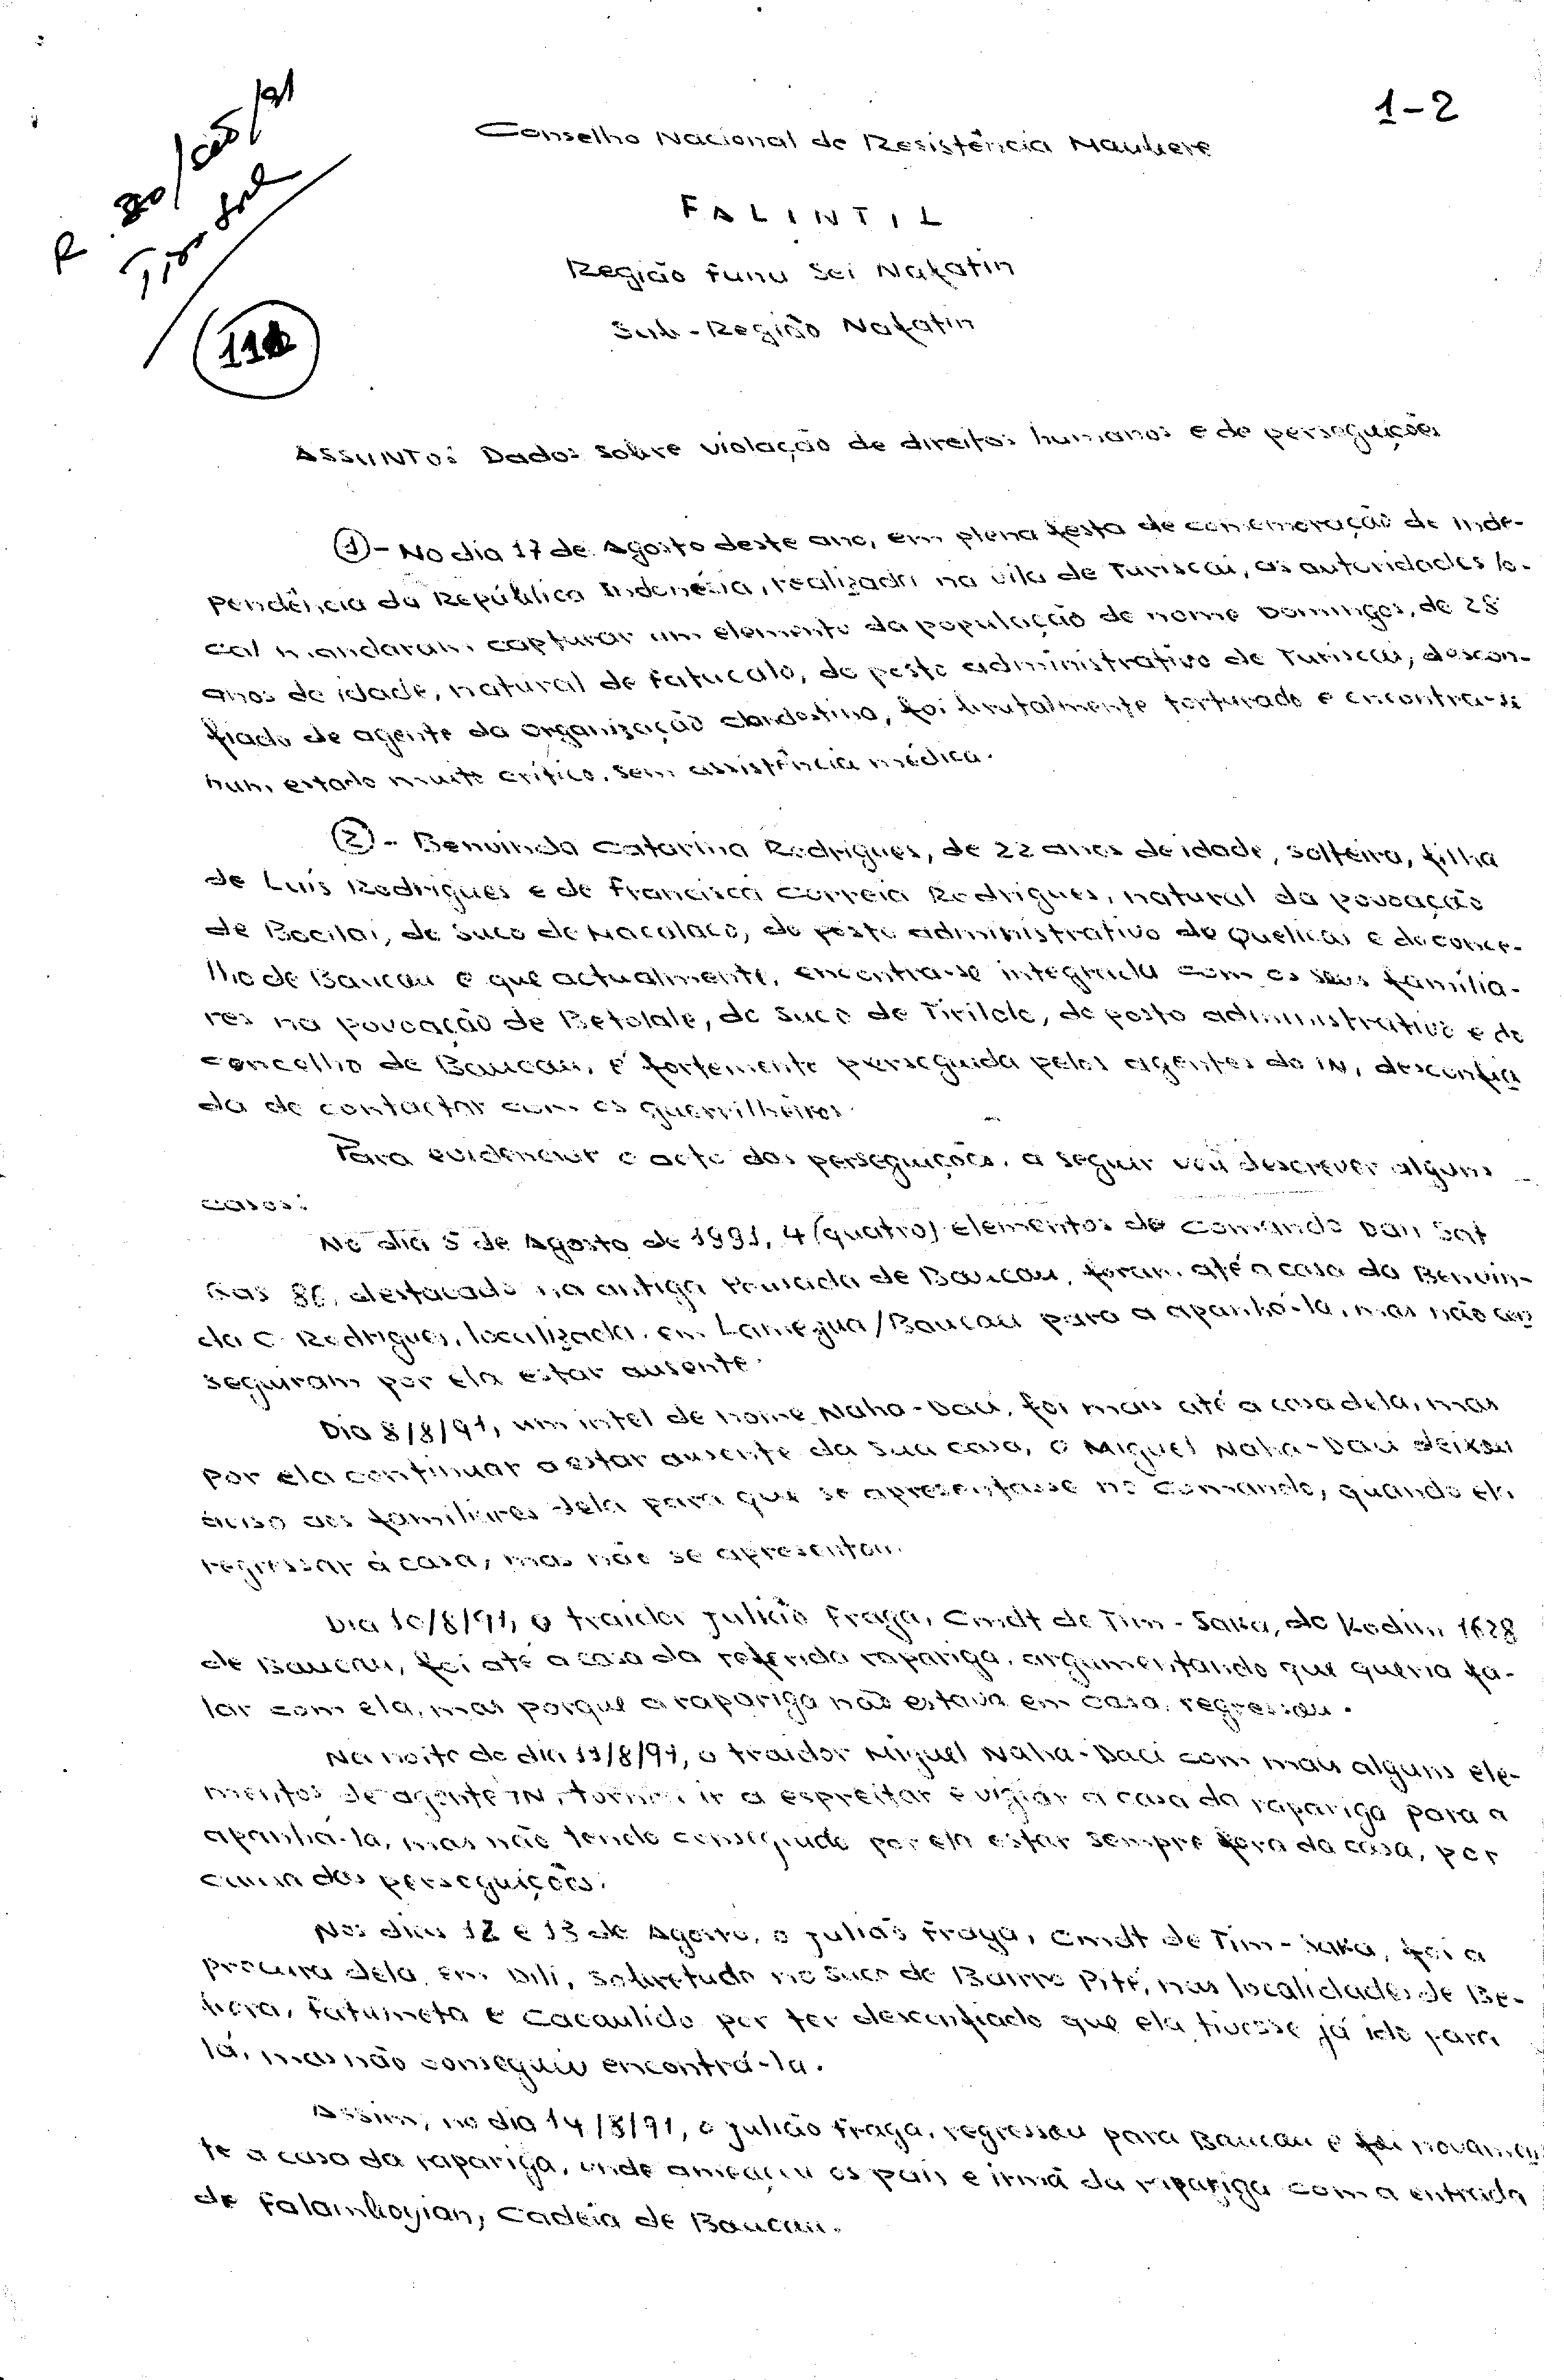 1-2
R. 30/
Conselho Nacional da Resistência Maubere
FALINTIL
Região Funu Sei Nafatin
Sub-Região Nafatin
ASSUNTO: Dados sobre violação de direitos humanos e de perseguições
① - No dia 17 de Agosto deste ano, em plena festa de comemoração de Inde-
pendência da República Indonésia, realizada na vila de Turiscai, as autoridades lo-
cal mandaram capturar um elemento da população de nome Domingos, de 28
anos de idade, natural de Fatucalo, do posto administrativo de Turiscai, descon-
fiado de agente da organização clandestina, foi brutalmente torturado e encontra-se
num estado muito crítico, sem assistência médica.
② - Benvinda Catarina Rodrigues, de 22 anos de idade, solteira, filha
de Luís Rodrigues e de Francisca Correia Rodrigues, natural da povoação
de Bocilai, do Suco de Macalaco, do posto administrativo de Quelicai e do conce-
lho de Baucau e que actualmente, encontra-se integrada com os seus família-
res na povoação de Betolale, do Suco de Tirilolo, do posto administrativo e do
concelho de Baucau, é fortemente perseguida pelos agentes do IN, desconfia
da de contactar com os guerrilheiros.
Para evidenciar o acto das perseguições, a seguir vou descrever alguns
casos:
No dia 5 de Agosto de 1991, 4 (quatro) elementos do Comando Dan Sat
Gas 86, destacado na antiga Pousada de Baucau, foram até a casa da Benvin-
da C. Rodrigues, localizada em Lamegua/Baucau para a apanhá-la, mas não con
seguiram por ela estar ausente.
Dia 8/8/91, um intel de nome Naha-Daci, foi mais até a casa dela, mas
por ela continuar a estar ausente da sua casa, o Miguel Naha-Daci deixou
aviso aos familiares dela para que se apresentasse no Comando, quando ela
regressar à casa, mas não se apresentou.
Dia 10/8/91, o traidor Julião Fraga, Cmdt de Tim-Saka, do Kodim 1628
de Baucau, foi até a casa da referida rapariga, argumentando que queria fa-
lar com ela, mas porque a rapariga não estava em casa, regressou.
Na noite do dia 11/8/91, o traidor Miguel Naha-Daci com mais alguns ele-
mentos de agente IN, tornou ir a espreitar e vigiar a casa da rapariga para a
apanhá-la, mas não tendo conseguido por ela estar sempre fora da casa, por
causa das perseguições.
Nos dias 12 e 13 de Agosto, o Julião Fraga, Cmdt de Tim-Saka, foi a
procura dela, em Dili, sobretudo no Suco de Bairro Pité, nas localidades de Be-
hora, Fatumeta e Cacaulido por ter desconfiado que ela tivesse já ido para
lá, mas não conseguiu encontrá-la.
Assim, no dia 14/8/91, o Julião Fraga, regressou para Baucau e foi novamen
te a casa da rapariga, onde ameaçou os pais e irmã da rapariga com a entrada
de Falamboyian, Cadeia de Baucau.